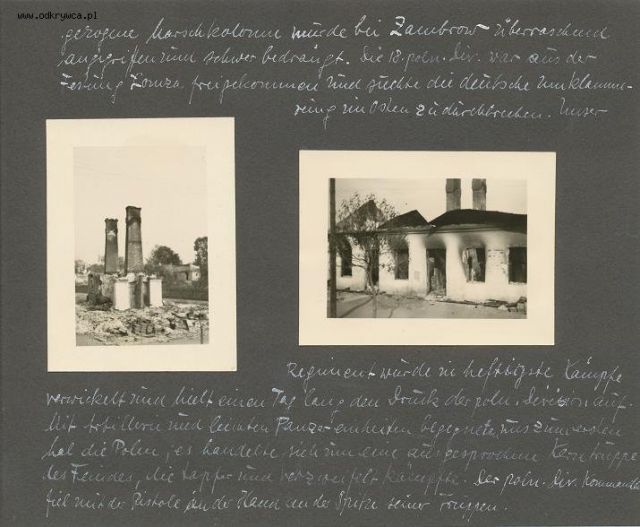 www.odkrywca.pl
gezogene Marschkolonne wurde bei Zambrow überraschend
angegriffen und schwer bedrängt. Die 18. poln. Div. war aus der
Festung Lomza freigekommen und suchte die deutsche Umklamme-
rung im Osten zu durchbrechen. Unser
Regiment wurde in heftigste Kämpfe
verwickelt und hielt einen Tag lang den Druck der poln. Division auf.
Mit Artillerie und leichten Panzereinheiten begegnete uns zum ersten
Mal die Polen, es handelte sich um eine ausgesprochene Kerntruppe
des Feindes, die tapfer und verzweifelt kämpfte. Der poln. Div. Kommandeur
fiel mit der Pistole in der Hand an der Spitze seiner Truppen.